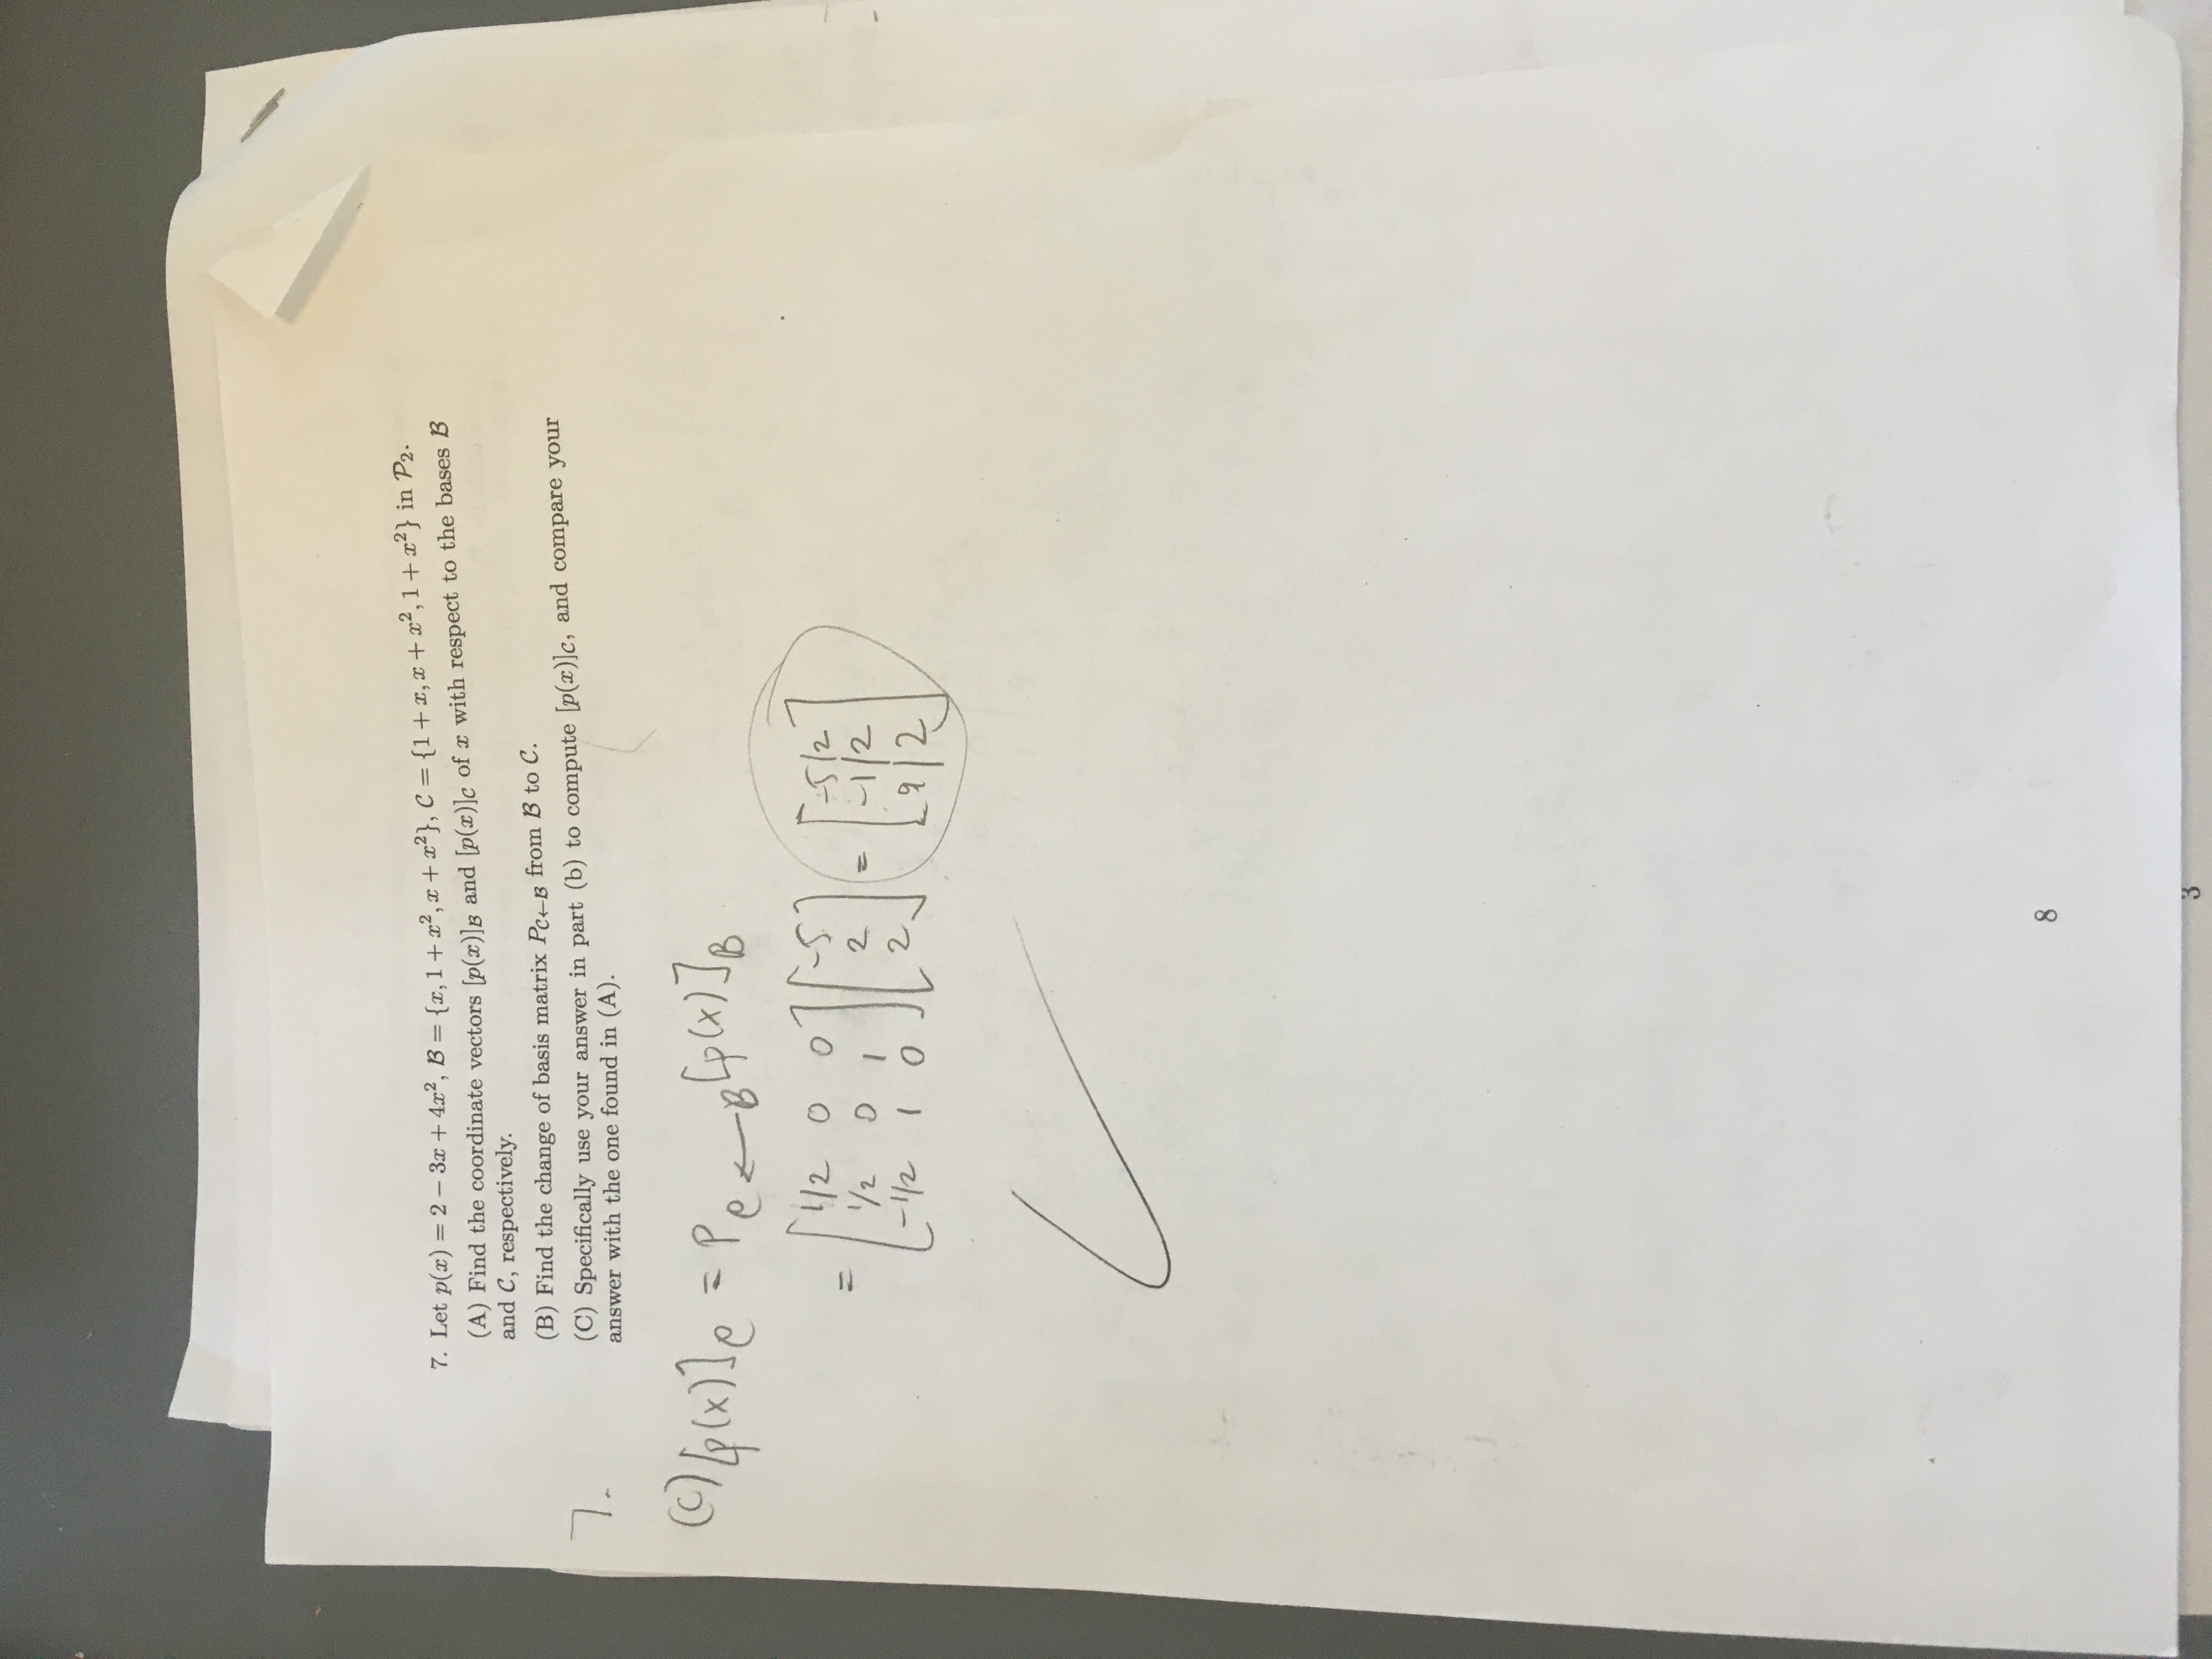 7. Let p(x) = 2 − 3x + 4x², ℬ = {x, 1 + x², x + x²}, 𝒞 = {1 + x, x + x², 1 + x²} in 𝒫₂.
(A) Find the coordinate vectors [p(x)]_ℬ and [p(x)]_𝒞 of x with respect to the bases ℬ
and 𝒞, respectively.
(B) Find the change of basis matrix P_𝒞←ℬ from ℬ to 𝒞.
(C) Specifically use your answer in part (b) to compute [p(x)]_𝒞, and compare your
answer with the one found in (A).
7.
(C) [p(x)]_𝒞 = P_𝒞←B [p(x)]_B
= [1/2 0 0; 1/2 0 1; -1/2 1 0] [-5; 2; 2] = [-5/2; -1/2; 9/2]
8
3